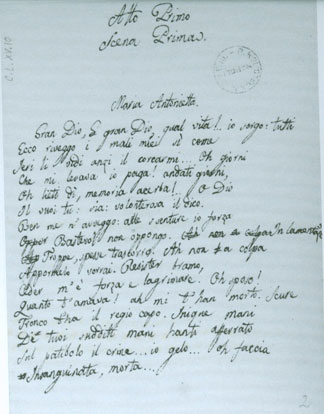 Atto Primo
Scena Prima.
C.L. XV.10
Maria Antonietta.
Gran Dio, E gran Dio, qual vita!.. io sorgo: tutti
Ecco riveggo i mali miei sì come
Ieri li vidi anzi il corcarmi... Oh giorni
Che mi levava io paga! andati giorni,
Oh lieti dì, memoria acerba!... O Dio
Il vuoi tu: sia: volonterosa il dico.
Ben me n'avveggo: alle sventure io forza
non oppongo. Ah non
Troppe, trascorro. Ah non ho colpa
Appormelo vorrai. Resister bramo,
Per m'è forza e lagrimare Oh sposo!
Quanto t'amava! ah mi t'han morto. Scure
Tronco t'ha il regio capo. Inique mani
De' tuoi sudditi mani hanti afferrato
Sul patibolo il crine... io gelo... oh faccia
Insanguinata, morta...!
2